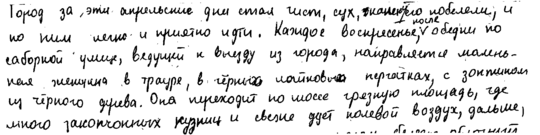 Город за эти апрельские дни стал чист, сух, камни его побелели, и
по ним легко и приятно идти. Каждое воскресенье, после обедни по
соборной улице, ведущей к выезду из города, направляется малень-
кая женщина в трауре, в чёрных лайковых перчатках, с зонтиком
из чёрного дерева. Она переходит по шоссе грязную площадь, где
много закопчонных кузниц и свежо дует полевой воздух, дальше,